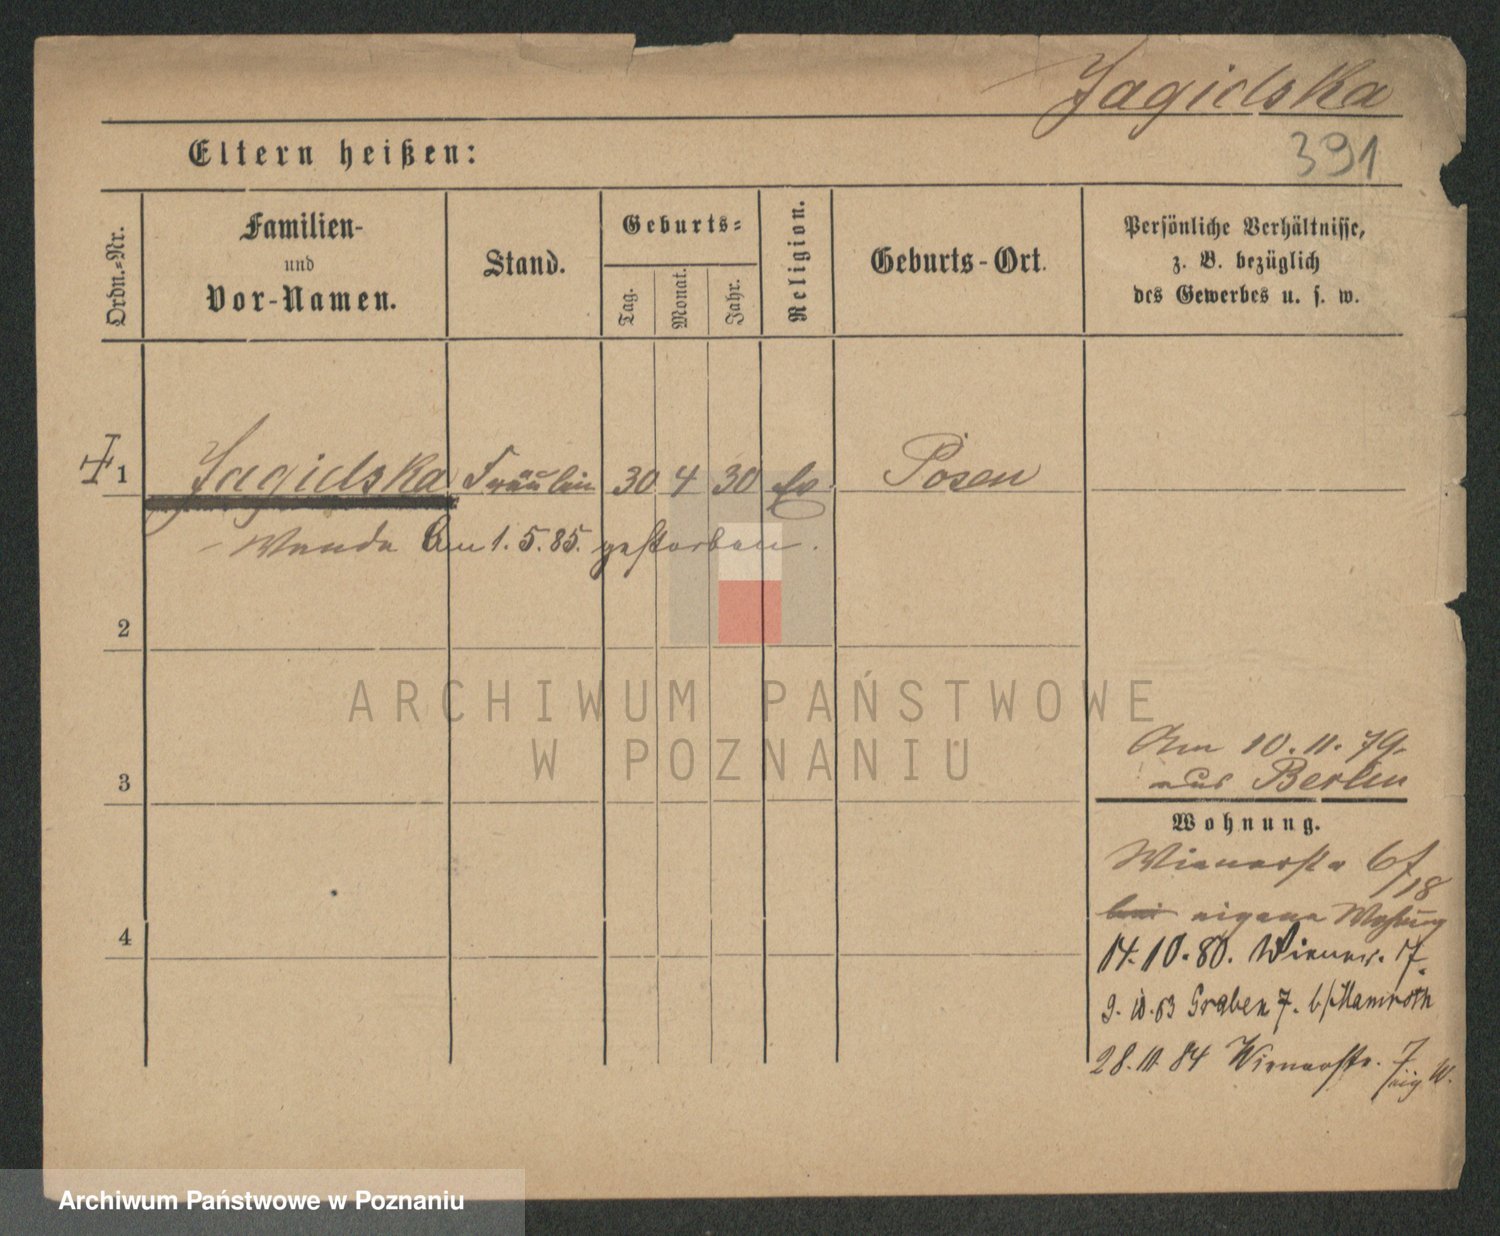 Jagielska
391
Eltern heißen:
Ordn.-Nr.
Familien-
und
Vor-Namen.
Stand.
Geburts-
Tag.
Monat.
Jahr.
Religion.
Geburts-Ort.
Persönliche Verhältnisse,
z. B. bezüglich
des Gewerbes u. s. w.
1 Jagielska Fräulein 30 4 30 Posen
Wanda Am 1.5.85. gestorben.
2
3
4
Am 10.11.79.
aus Berlin
Wohnung.
Wienerstr 6/
18
bei eigene Wohung
14.10.80. Wiener. 17.
Graben 7. b/Mamroth
84 Wienerstr. 7
eig W.
ARCHIWUM PAŃSTWOWE
W POZNANIU
Archiwum Państwowe w Poznaniu